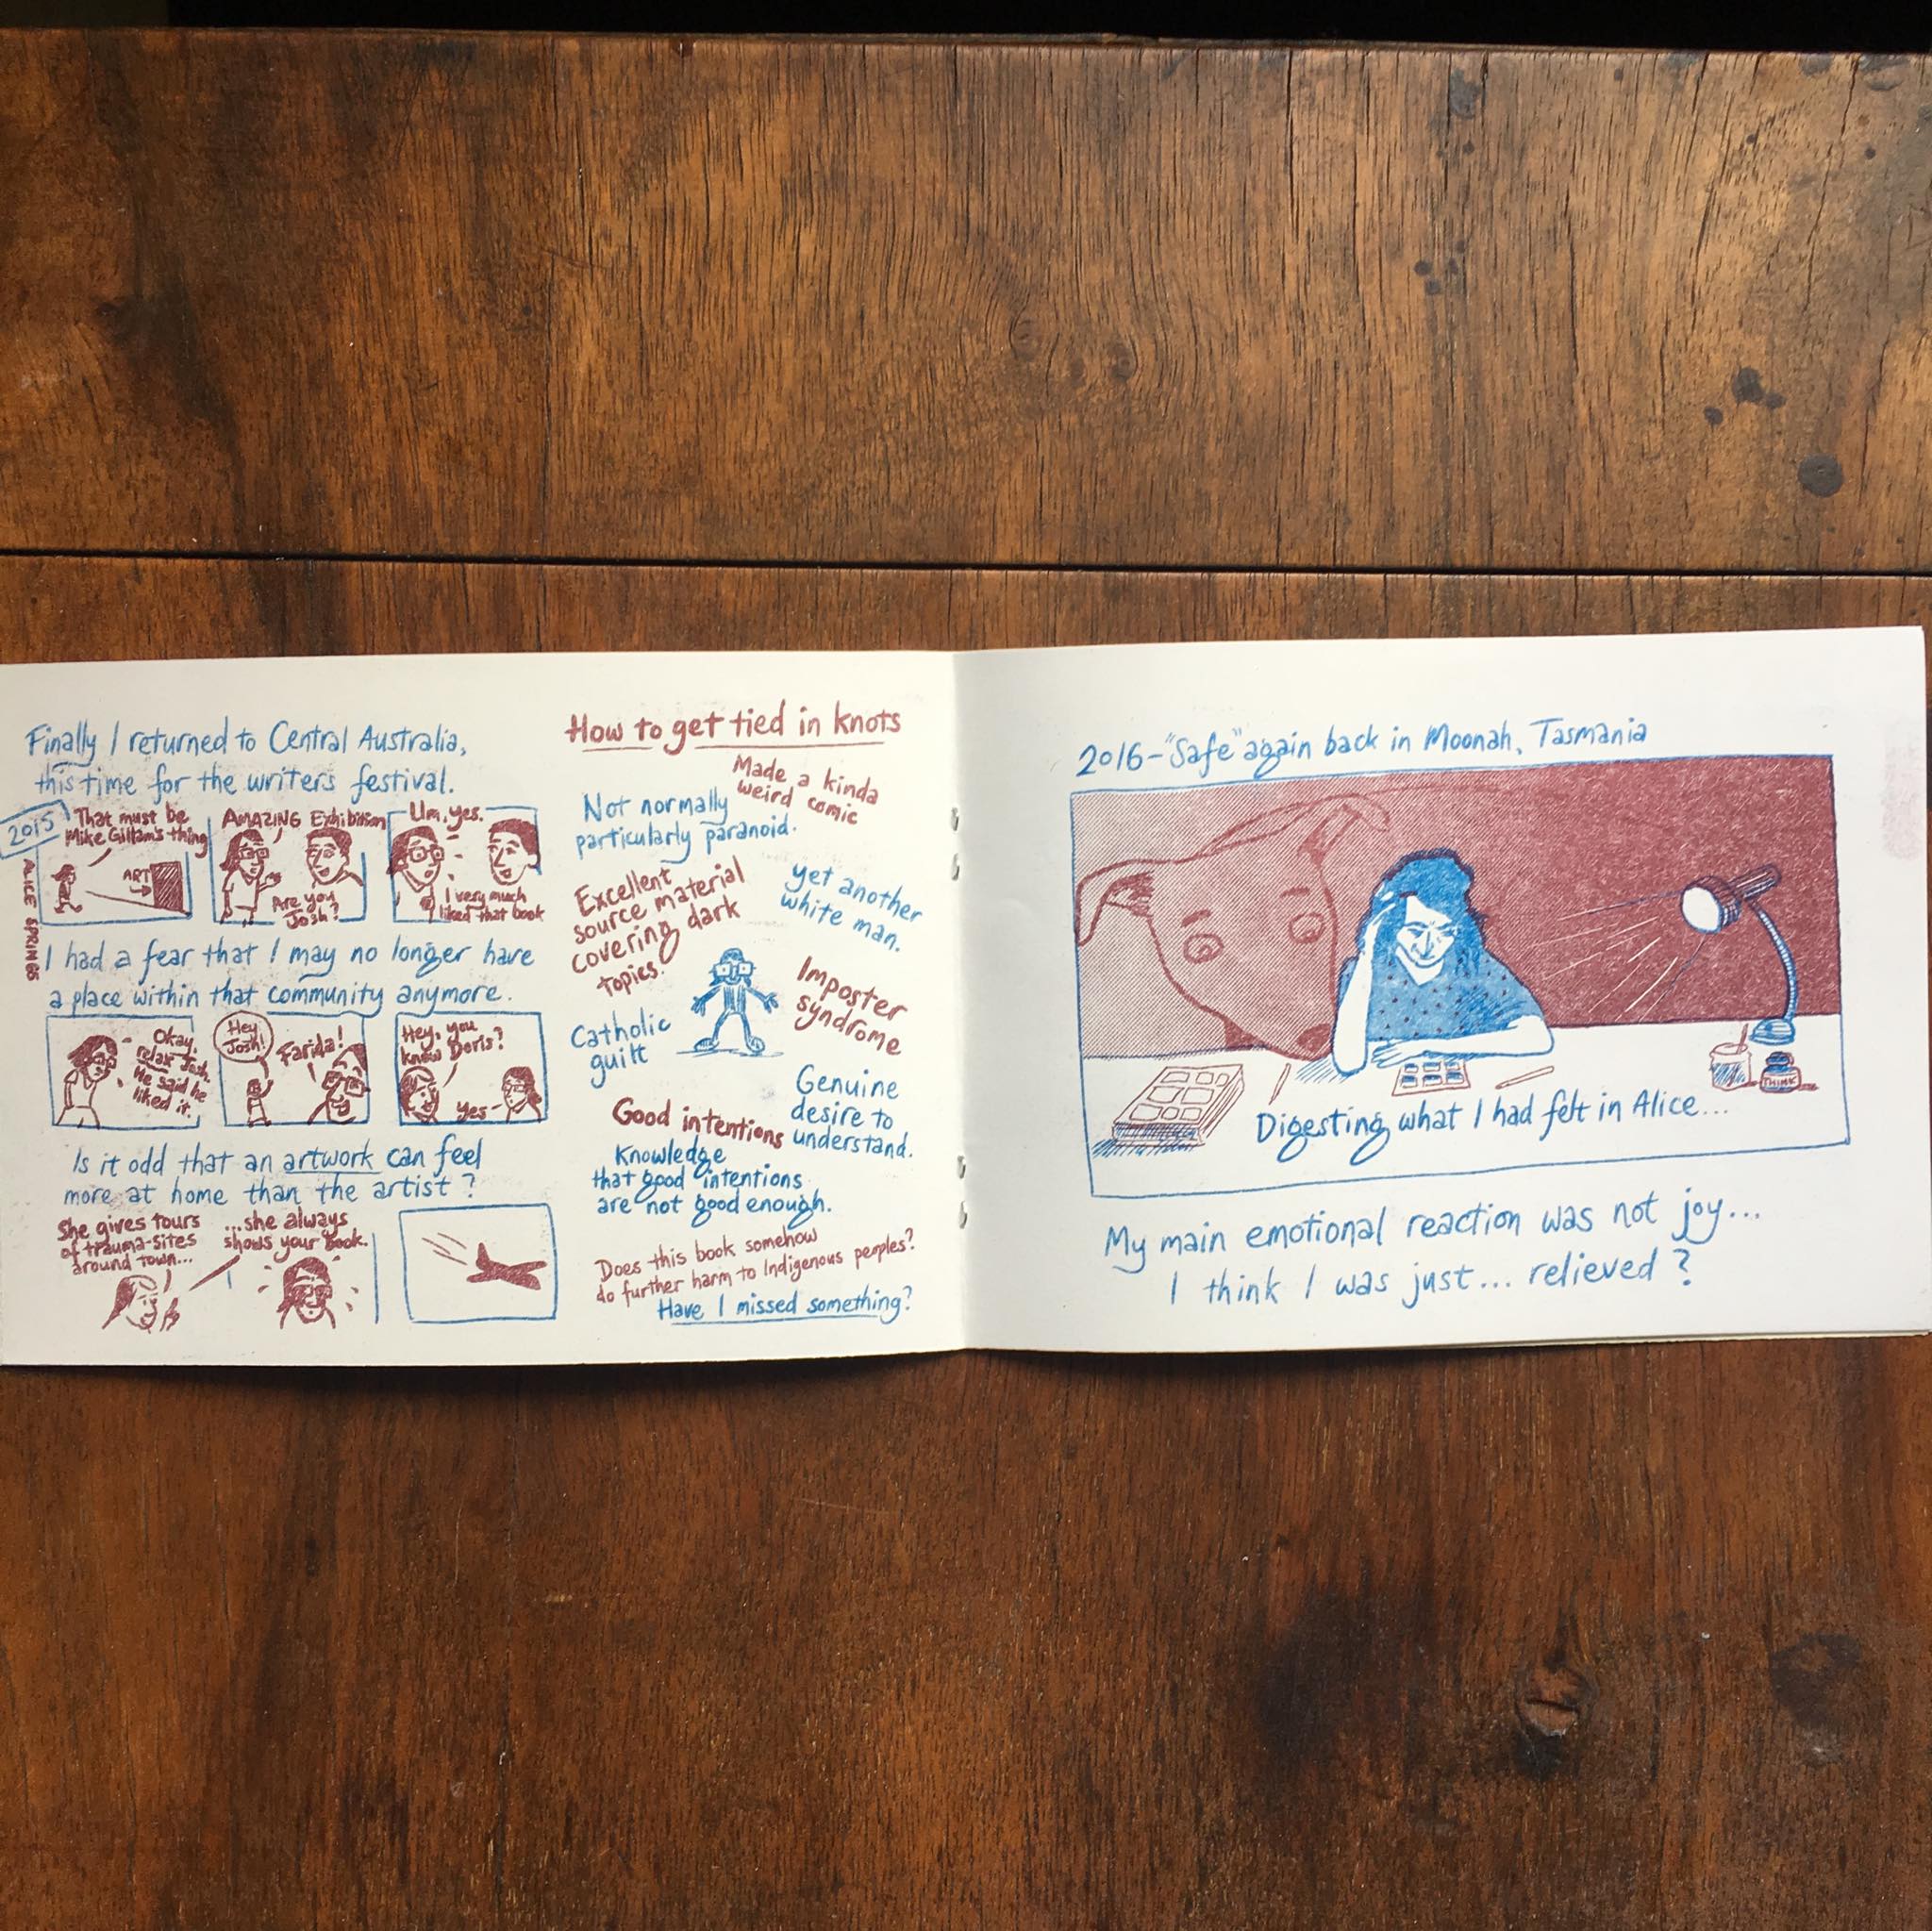 Finally I returned to Central Australia,
this time for the writers festival.
2015
ALICE SPRINGS
That must be
Mike Gillam's thing
ART
AMAZING Exhibition
Are you
Josh?
Um, yes.
I very much
liked that book
I had a fear that I may no longer have
a place within that community anymore.
Okay,
relax Josh.
He said he
liked it.
Hey
Josh!
Farida!
Hey, you
know Doris?
Yes
Is it odd that an artwork can feel
more at home than the artist?
She gives tours
of trauma-sites
around town...
...she always
shows your book.
How to get tied in knots
Made a kinda
weird comic
Not normally
particularly paranoid.
Excellent
source material
covering dark
topics.
yet another
white man.
Imposter
syndrome
Catholic
guilt
Genuine
desire to
understand.
Good intentions
Knowledge
that good intentions
are not good enough.
Does this book somehow
do further harm to Indigenous peoples?
Have I missed something?
2016-"Safe" again back in Moonah, Tasmania
THINK
Digesting what I had felt in Alice...
My main emotional reaction was not joy...
I think I was just... relieved?